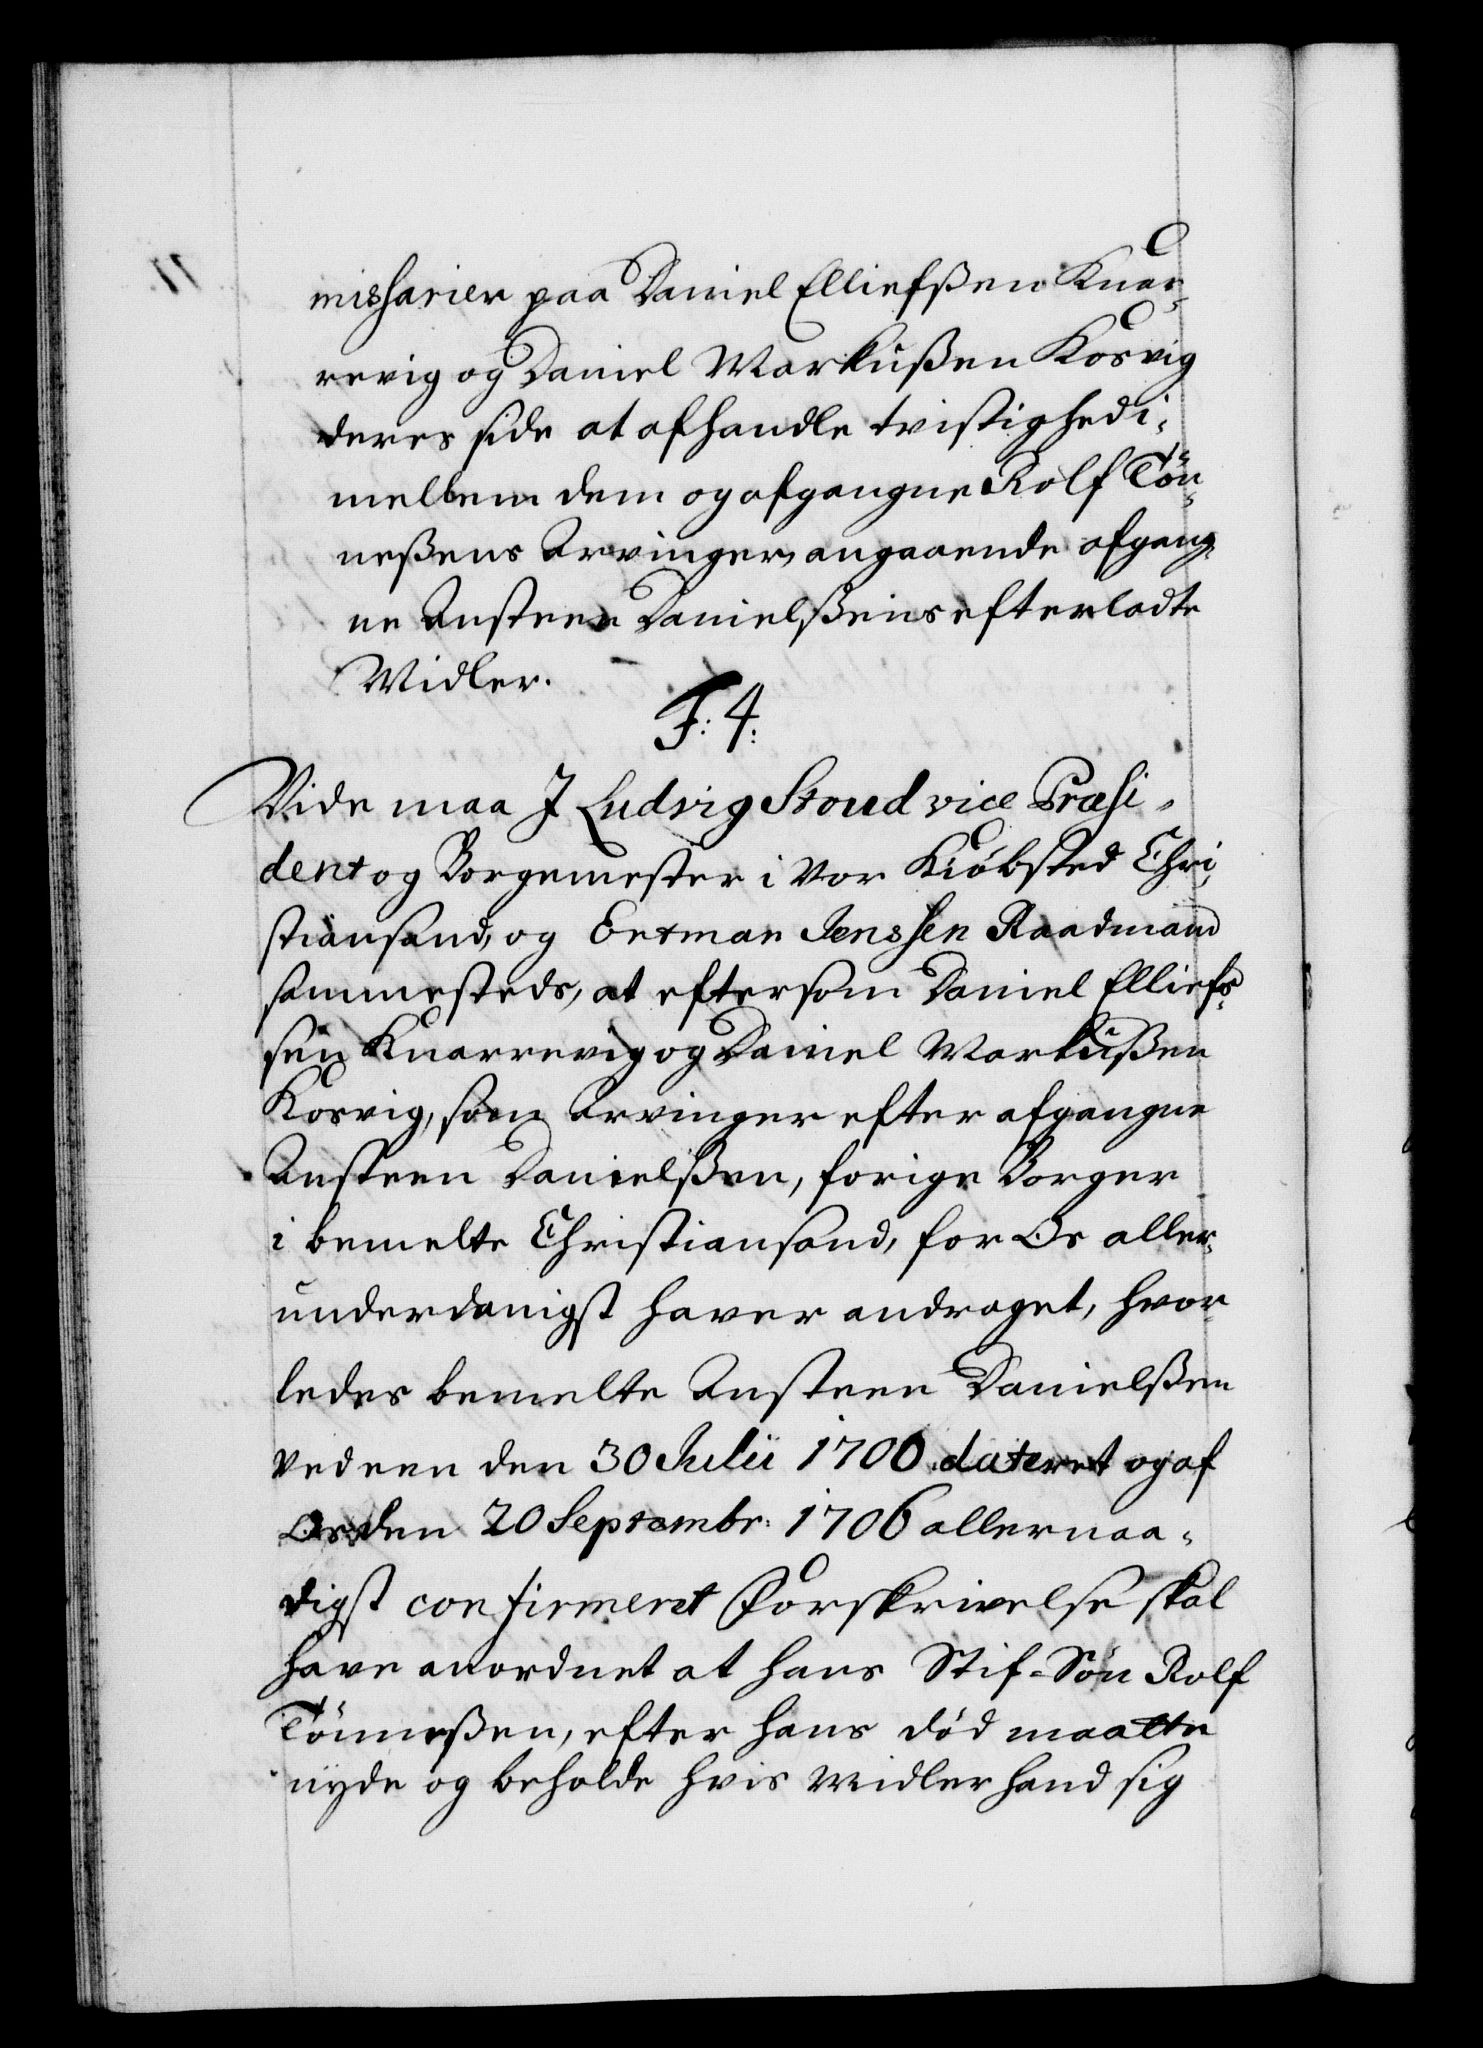 missarier paa Daniel Elliefsßen Knar-
revig og Daniel Markußen Kosvig
deres side at afhandle tvistighed i-
mellem dem og afgangne Rolf Tön-
neßens Arvinger, angaaende afgang-
ne Ansteen Danielßens efterladte
Midler.
F: 4:
Vide maa I Ludvig Stoud vice Præsi-
dent og Borgemester i vor Kiöbsted Chri-
stiansand, og Ertman Jenssen Raadmand
sammesteds, at eftersom Daniel Elliefs-
sen Knarrevig og Daniel Markußen
Kosvig, som Arvinger efter afgangne
Ansteen Danielßen, forige Borger
i bemelte Christiansand, for Os aller-
underdanigst haver andraget, hvor-
ledes bemelte Ansteen Danielßen
ved een den 30 Julii 1700 dateret og af
Os den 20 Septembr: 1706 allernaa-
digst confirmeret Forskrivelse skal
have anordnet at hans Stif-Sön Rolf
Tönneßen, efter hans död maatte
nyde og beholde hvis Midler hand sig